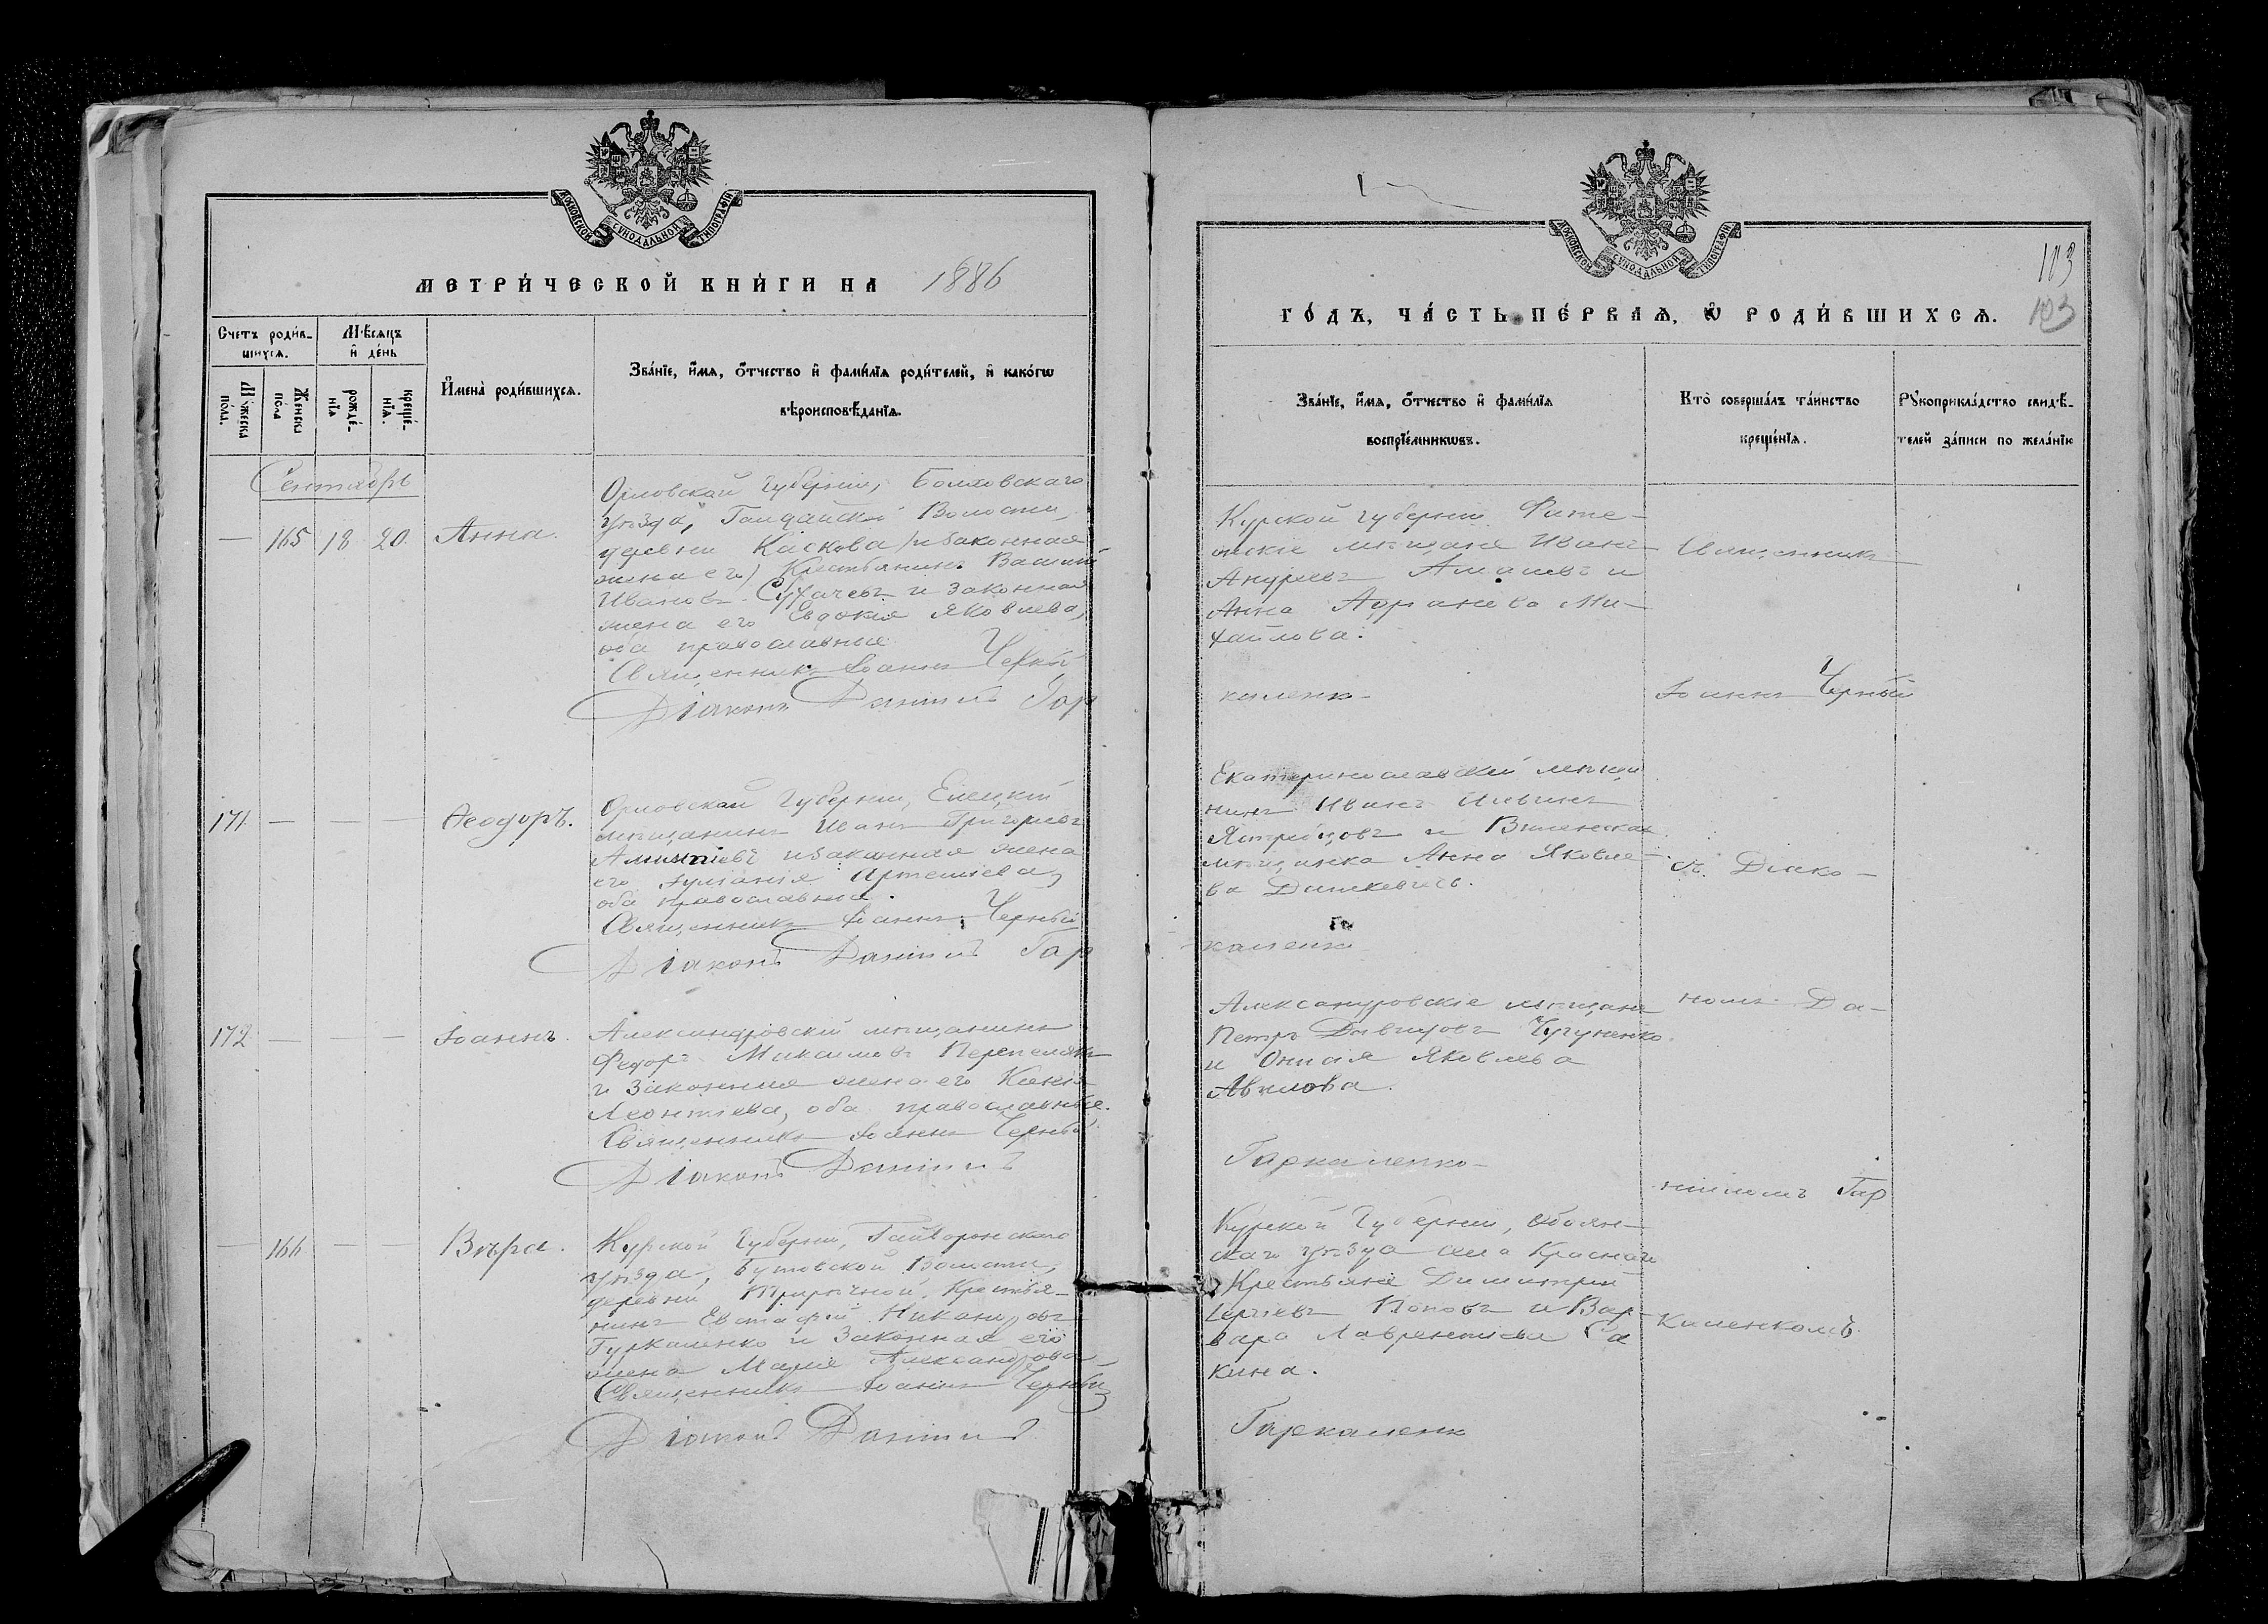 МОСКОВСКОЙ СУНОДАЛЬНОЙ ТИПОГРАФІИ
МЕТРИ́ЧЕСКОЙ КНИ́ГИ НА 1886
Счетъ роди́в-
шихсѧ.
Мѣсѧцъ
и҆ де́нь
Мꙋжеска
по́ла.
Женска
по́ла
рожде́-
нїѧ
креще́-
нїѧ.
И҆мена̀ роди́вшихсѧ.
Зва́нїе, и҆́мѧ, ѻ҆́тчество и҆ фами́лїѧ роди́телей, и҆ како́гѡ
вѣроисповѣ́данїѧ.
Сентябрь
— 165 18 20. Анна.
Орловской губерніи, Болховскаго
уѣзда, Волости,
деревни (и законная
жена его) Крестьянинъ Василій
Ивановъ и законная
жена его Евдокія Яковлева,
оба православные.
Священникъ Іоаннъ Черный
Діаконъ Даніилъ Гар
171. — — — Ѳеодоръ.
Орловской губерніи, Елецкій
мѣщанинъ Иванъ Григорьевъ
и законная жена
его Іуліанія Артемьева,
оба православные.
Священникъ Іоаннъ Черный
Діаконъ Даніилъ Гар
172 — — — Іоаннъ.
Александровскій мѣщанинъ
Федоръ Максимовъ
и законная жена его
Леонтьева, оба православные.
Священникъ Іоаннъ Черный
Діаконъ Даніилъ
— 166 — — Вѣра.
Курской губерніи, Гайворонскаго
уѣзда, Бутовской Волости,
деревни Крестья-
нинъ Евстафій Никаноровъ
Гуркаленко и законная его
жена Марія Александрова
Священникъ Іоаннъ Черный
Діаконъ Даніилъ
МОСКОВСКОЙ СУНОДАЛЬНОЙ ТИПОГРАФІИ
103
103
ГО́ДЪ, ЧА́СТЬ ПЕ́РВАѦ, Ѡ҆ РОДИ́ВШИХСѦ.
Зва́нїе, и҆́мѧ, ѻ҆́тчество и҆ фами́лїѧ
воспрїе́мникѡвъ.
Кто̀ соверша́лъ та́инство
креще́нїѧ.
Рꙋкоприкла́дство свидѣ́-
телей за́писи по жела́нїю
Курской губерніи Фате-
жскіе мѣщане Иванъ
Андреевъ и
Анна Ми-
хайлова.
каленко
Священникъ
Іоаннъ Черный
Екатеринославскій мѣща
нинъ Иванъ
Ястребцовъ и Виленская
мѣщанка Анна Яковле-
ва
каленко
съ Діако-
Александровскіе мѣщане
Петръ Давидовъ Чугуненко
и Яковлева
Авилова.
Гаркаленко
номъ Да-
ніиломъ Гар
Курской губерніи, Обоян-
скаго уѣзда села Краснаго
Крестьяне Димитрій
Сергіевъ Поповъ и Вар-
вара Лаврентіева Са
кина.
Гаркаленк
каленкомъ.